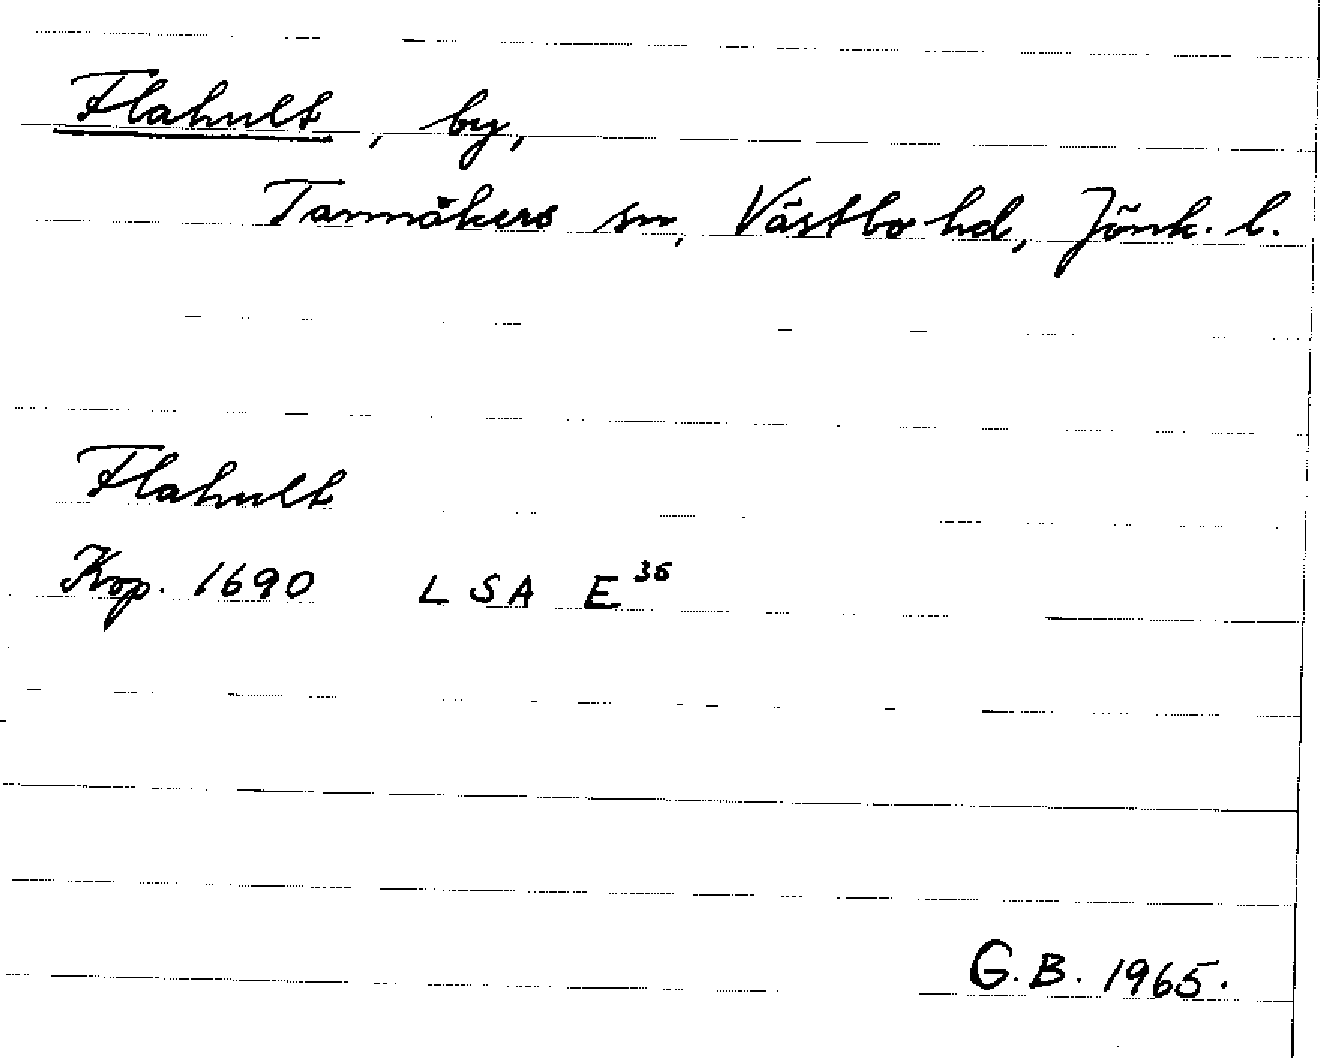 Flahult, by,
Tannåkers sn, Västbo hd, Jönk. l.
Flahult
Kop. 1690 LSA E³⁶
G.B. 1965.